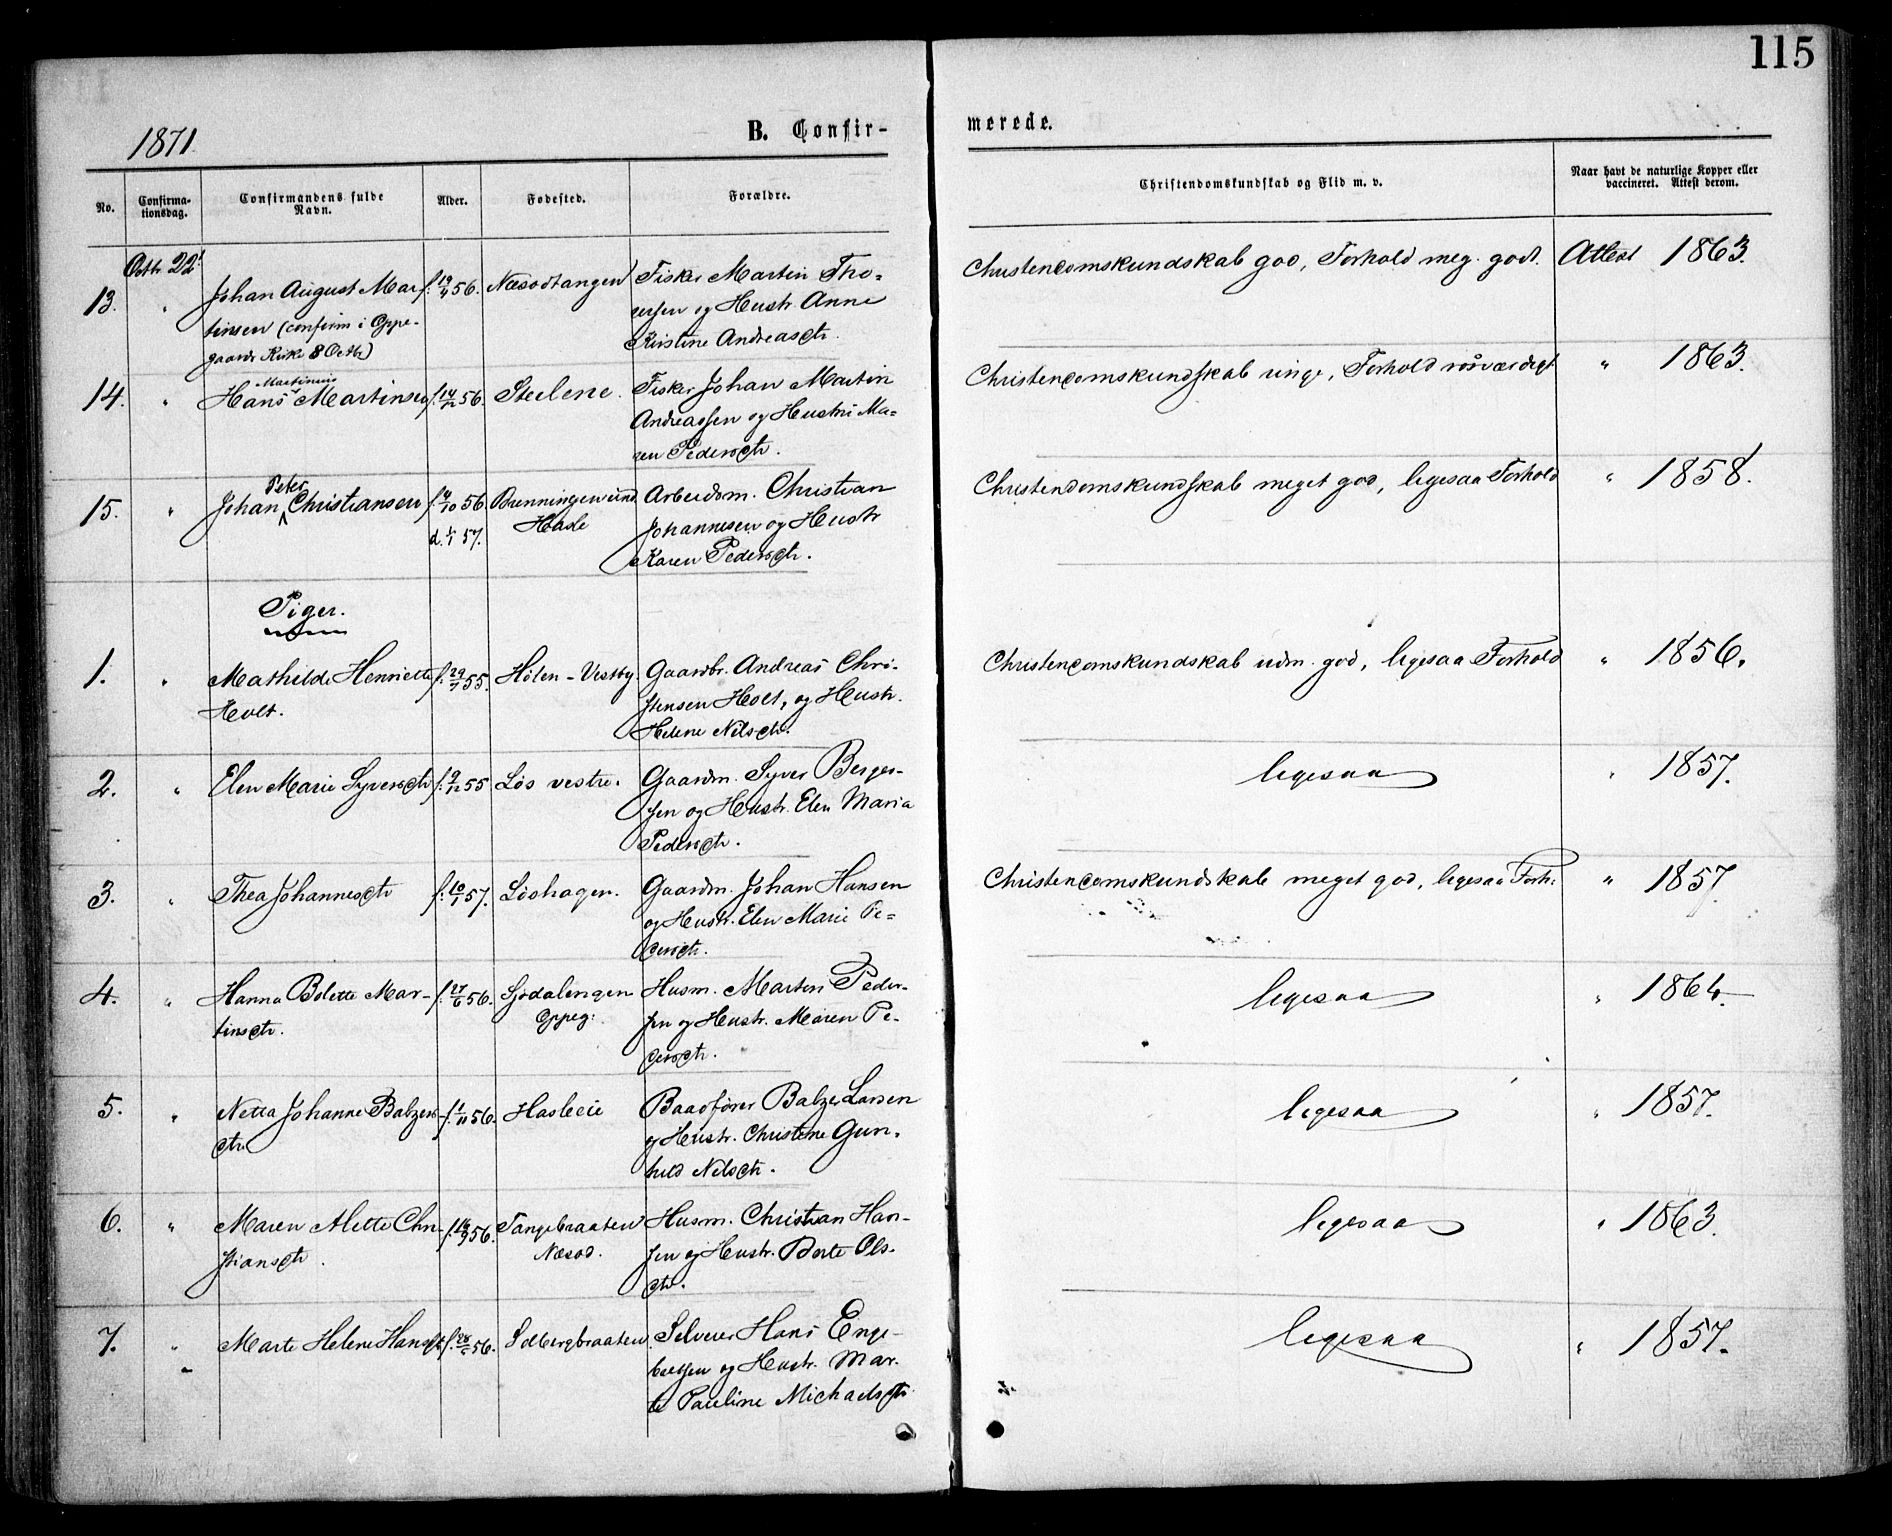 115
1871
B. Confir-
merede.
No.
Confirma-
tionsdag.
Confirmandens fulde
Navn.
Alder.
Fødested.
Forældre.
Christendomskundskab og Flid m. v.
Naar havt de naturlige Kopper eller
vaccineret. Attest derom.
Octbr 22!
13. " Johan August Mar f. 19/4 56. Næsodtangen Fisker Martin Tho- Christendomskundskab god, Forhold meg. godt. Attest 1863.
tinsen (confirm i Oppe- og Hustr. Anne
gaards Kirke 8 Octbr) Kirstine Andreasdtr.
Martinius
14. " Hans Martinsen f. 14/12 56. Steilene. Fisker Johan Martin Christendomskundskab ringe, Forhold rosværdigt " 1863.
Andreassen og Hustru Ma-
ren Pedersdtr.
Peter
15. " Johan Christiansen f. 4/10 56 Brenningen und. Arbeidsm. Christian Christendomskundskab meget god, ligesaa Forhold " 1858.
d. 1/1 57. Hasle Johannesen og Hustr
Karen Pedersdtr.
Piger.
1. " Mathilde Henriette f. 29/7 55. Hølen - Vestby. Gaardbr. Andreas Chri- Christendomskundskab udm. god, ligesaa Forhold " 1856.
Holt. stensen Holt, og Hustr.
Helene Nilsdtr.
2. " Elen Marie Syversdtr f. 9/12 55 Løs vestre. Gaardm. Syver Berger- ligesaa " 1857.
sen og Hustr. Elen Maria
Pedersdtr.
3. " Thea Johannesdtr f. 10/1 57. Løshagen. Gaardm. Johan Hansen Christendomskundskab meget god, ligesaa Forh: " 1857
og Hustr. Elen Marie Pe-
dersdtr.
4. " Hanna Bolette Mar- f. 27/6 56. Sjødalengen Husm. Marten Peder- ligesaa " 1864.
tinsdtr. Oppeg: sen og Hustr. Maren Pe-
dersdtr.
5. " Netta Johanne Balzers f. 1/11 56. Hasleeie Baadfører Balzer Larsen ligesaa " 1857.
dtr. og Hustr. Christine Gun-
hild Nilsdtr.
6. " Maren Alette Chri- f. 16/9 56. Tangebraaten Husm. Christian Han- ligesaa " 1863.
stiansdtr. Næsod. sen og Hustr. Berte Ols-
dtr.
7. " Marte Helene Hansdtr. 56. Solbergbraaten. Selveier Hans Enge- ligesaa " 1857.
bretsen og Hustr. Mar-
te Pauline Michaelsdtr.